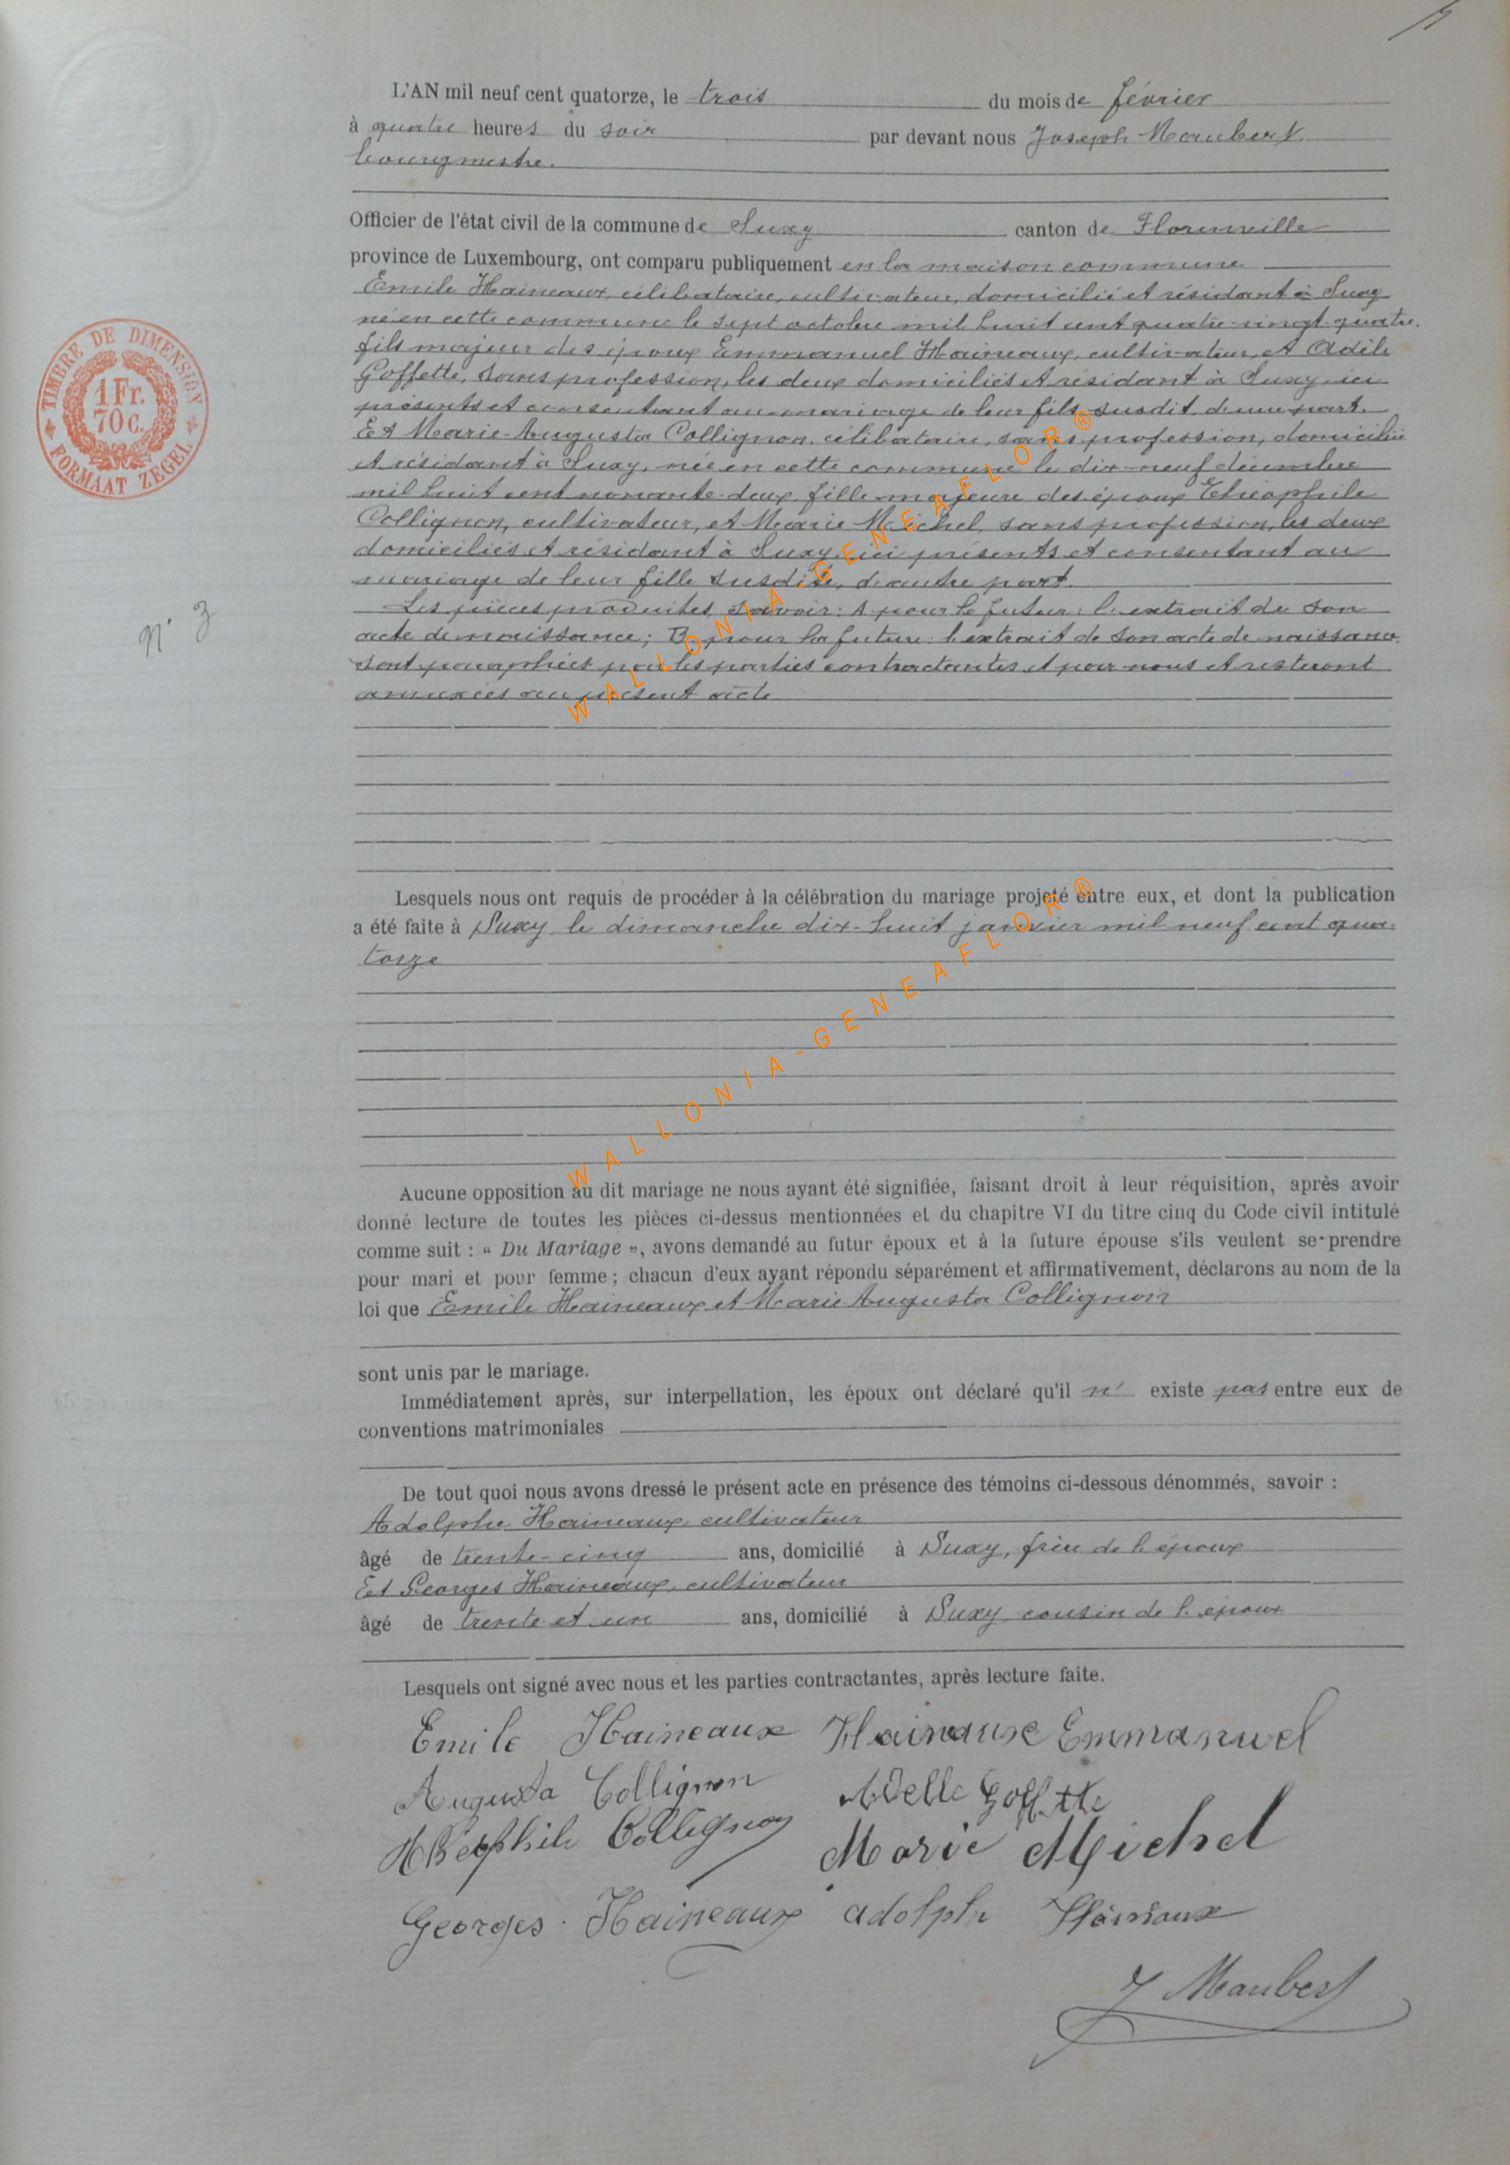 L'AN mil neuf cent quatorze, le trois du mois de février
à quatre heures du soir par devant nous Joseph Maubert
bourgmestre.
Officier de l'état civil de la commune de Suxy canton de Florenville
province de Luxembourg, ont comparu publiquement en la maison commune
Emile Haineaux, célibataire, cultivateur, domicilié et résidant à Suxy
né en cette commune le sept octobre mil huit cent quatre-vingt-quatre,
fils majeur des époux Emmanuel Haineaux, cultivateur, et Adèle
Goffette, sans profession, les deux domiciliés et résidant à Suxy, ici
présents et consentant au mariage de leur fils susdit, d'une part.
Et Marie-Augusta Collignon, célibataire, sans profession, domiciliée
et résidant à Suxy, née en cette commune le dix-neuf décembre
mil huit cent nonante-deux, fille majeure des époux Théophile
Collignon, cultivateur, et Marie Michel, sans profession, les deux
domiciliés et résidant à Suxy, ici présents et consentant au
mariage de leur fille susdite, d'autre part.
Les pièces produites, savoir: A pour le futur: l'extrait de son
acte de naissance; B. pour la future: l'extrait de son acte de naissance,
sont paraphées par les parties contractantes et par nous et resteront
annexées au présent acte
N° 3
TIMBRE DE DIMENSION
1 Fr.
70 C.
FORMAAT ZEGEL
WALLONIA-GENEAFLOR®
Lesquels nous ont requis de procéder à la célébration du mariage projeté entre eux, et dont la publication
a été faite à Suxy, le dimanche dix-huit janvier mil neuf cent qua-
torze
WALLONIA-GENEAFLOR®
Aucune opposition au dit mariage ne nous ayant été signifiée, faisant droit à leur réquisition, après avoir
donné lecture de toutes les pièces ci-dessus mentionnées et du chapitre VI du titre cinq du Code civil intitulé
comme suit : « Du Mariage », avons demandé au futur époux et à la future épouse s'ils veulent se prendre
pour mari et pour femme ; chacun d'eux ayant répondu séparément et affirmativement, déclarons au nom de la
loi que Emile Haineaux et Marie Augusta Collignon
sont unis par le mariage.
Immédiatement après, sur interpellation, les époux ont déclaré qu'il n' existe pas entre eux de
conventions matrimoniales
De tout quoi nous avons dressé le présent acte en présence des témoins ci-dessous dénommés, savoir :
Adolphe Haineaux, cultivateur
âgé de trente-cinq ans, domicilié à Suxy, frère de l'époux
Et Georges Haineaux, cultivateur
âgé de trente et un ans, domicilié à Suxy, cousin de l'époux
Lesquels ont signé avec nous et les parties contractantes, après lecture faite.
Emile Haineaux Haineause Emmanuel
Augusta Collignon Adelle Goffette
Théophile Collignon Marie Michel
Georges Haineaux adolphe Haineaux
J Maubert